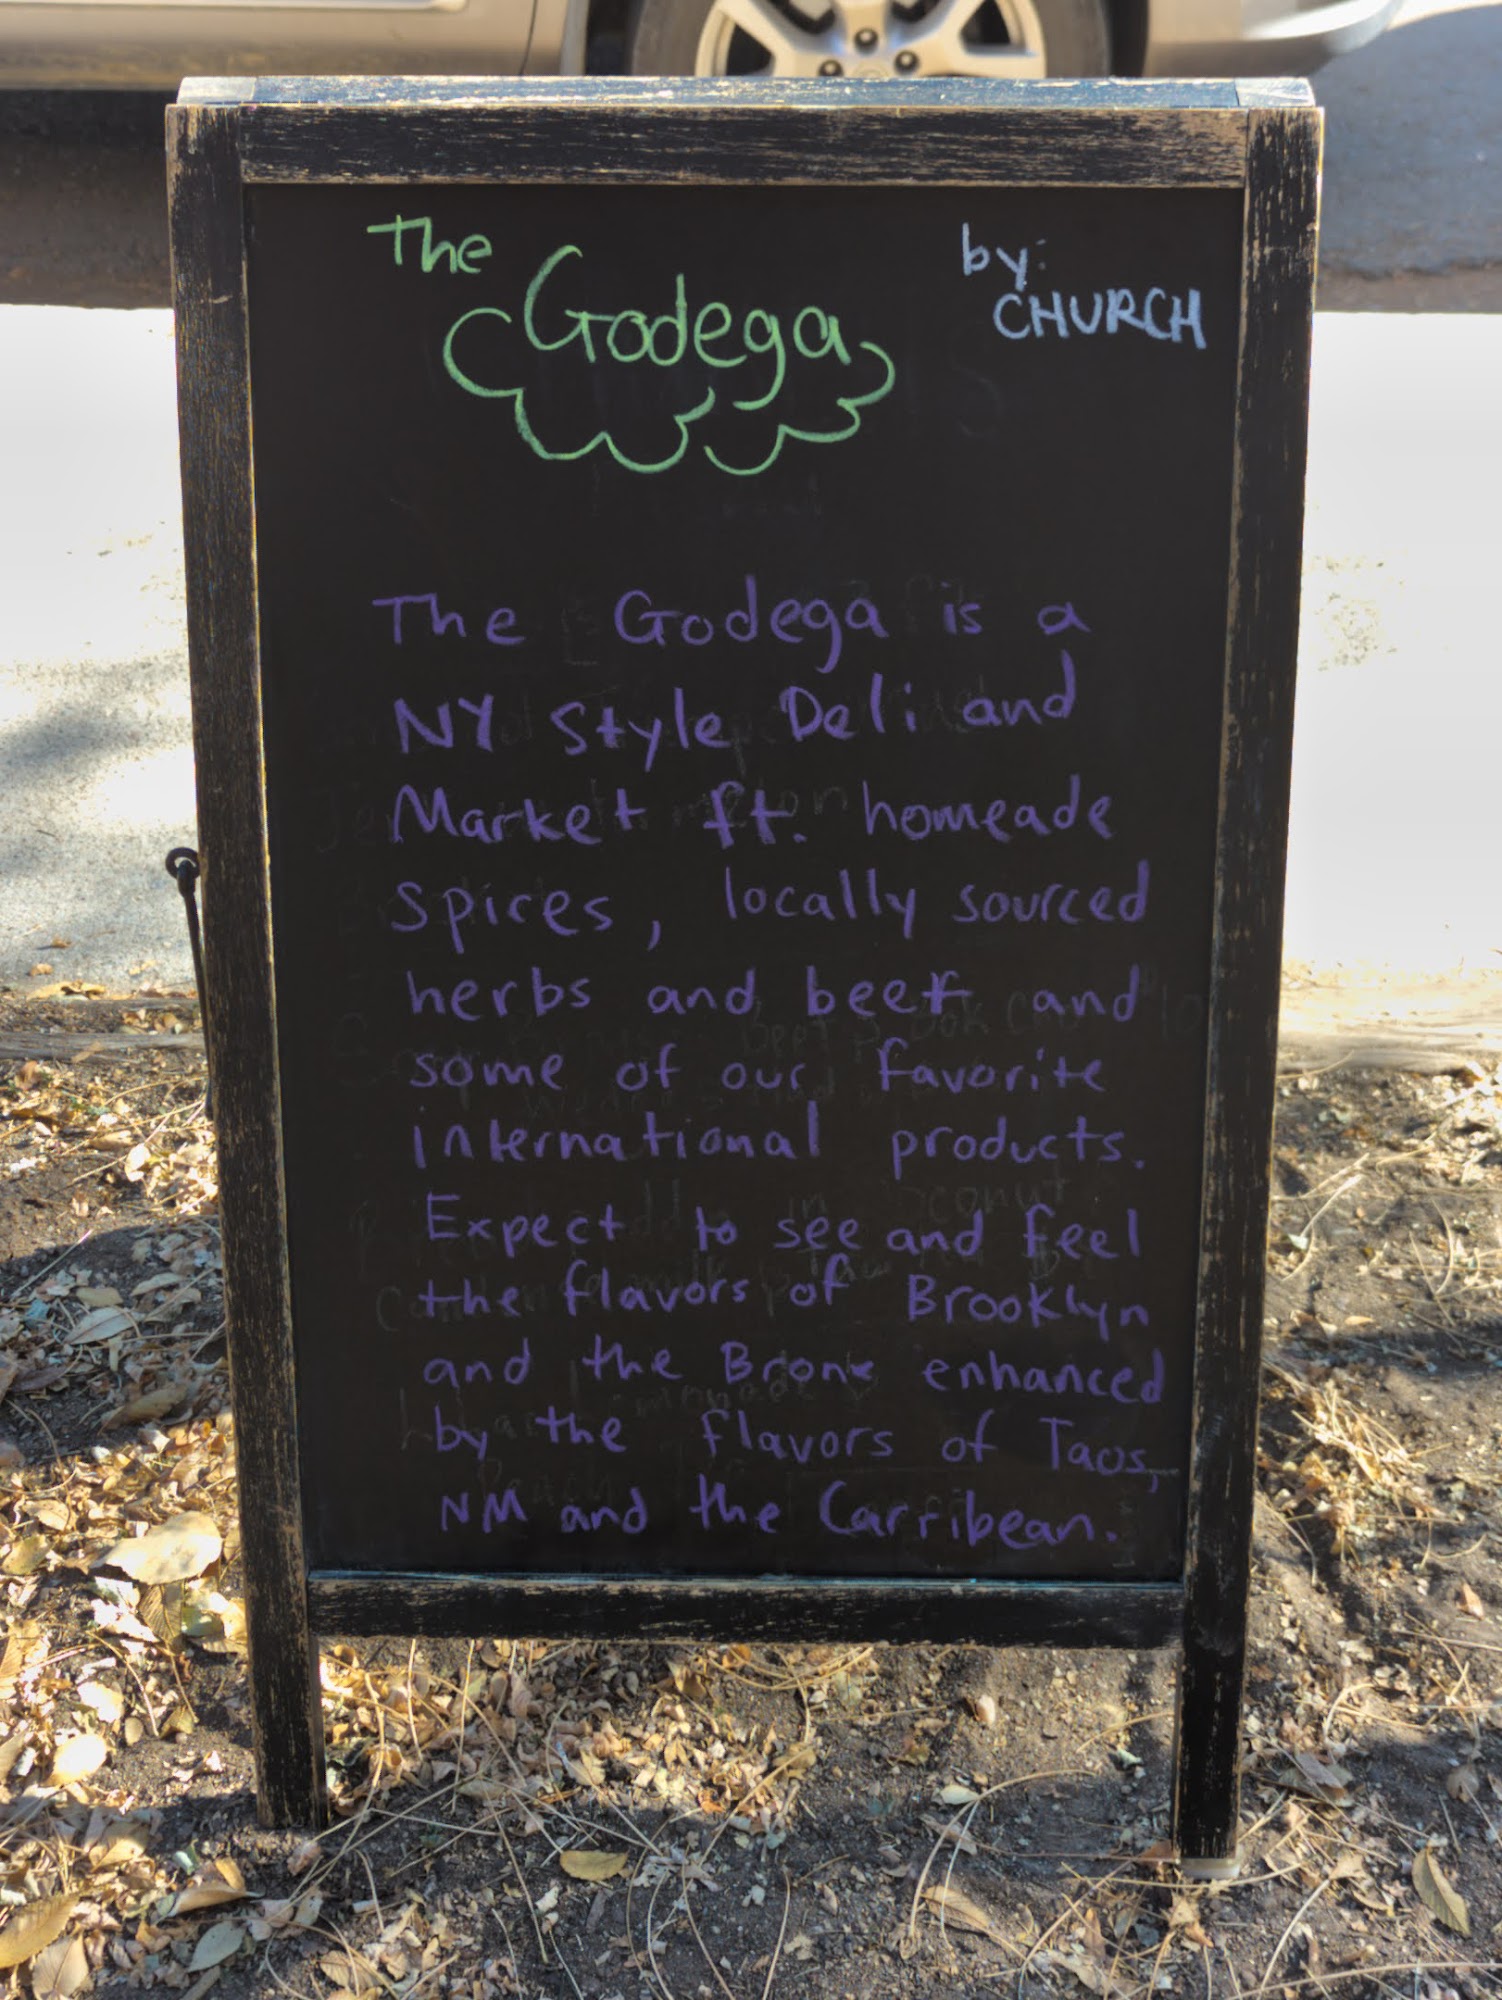 The
Godega
by:
CHURCH
The Godega is a
NY Style Deli and
Market ft. homeade
spices, locally sourced
herbs and beef and
some of our favorite
international products.
Expect to see and feel
the flavors of Brooklyn
and the Bronx enhanced
by the flavors of Taos,
NM and the Carribean.